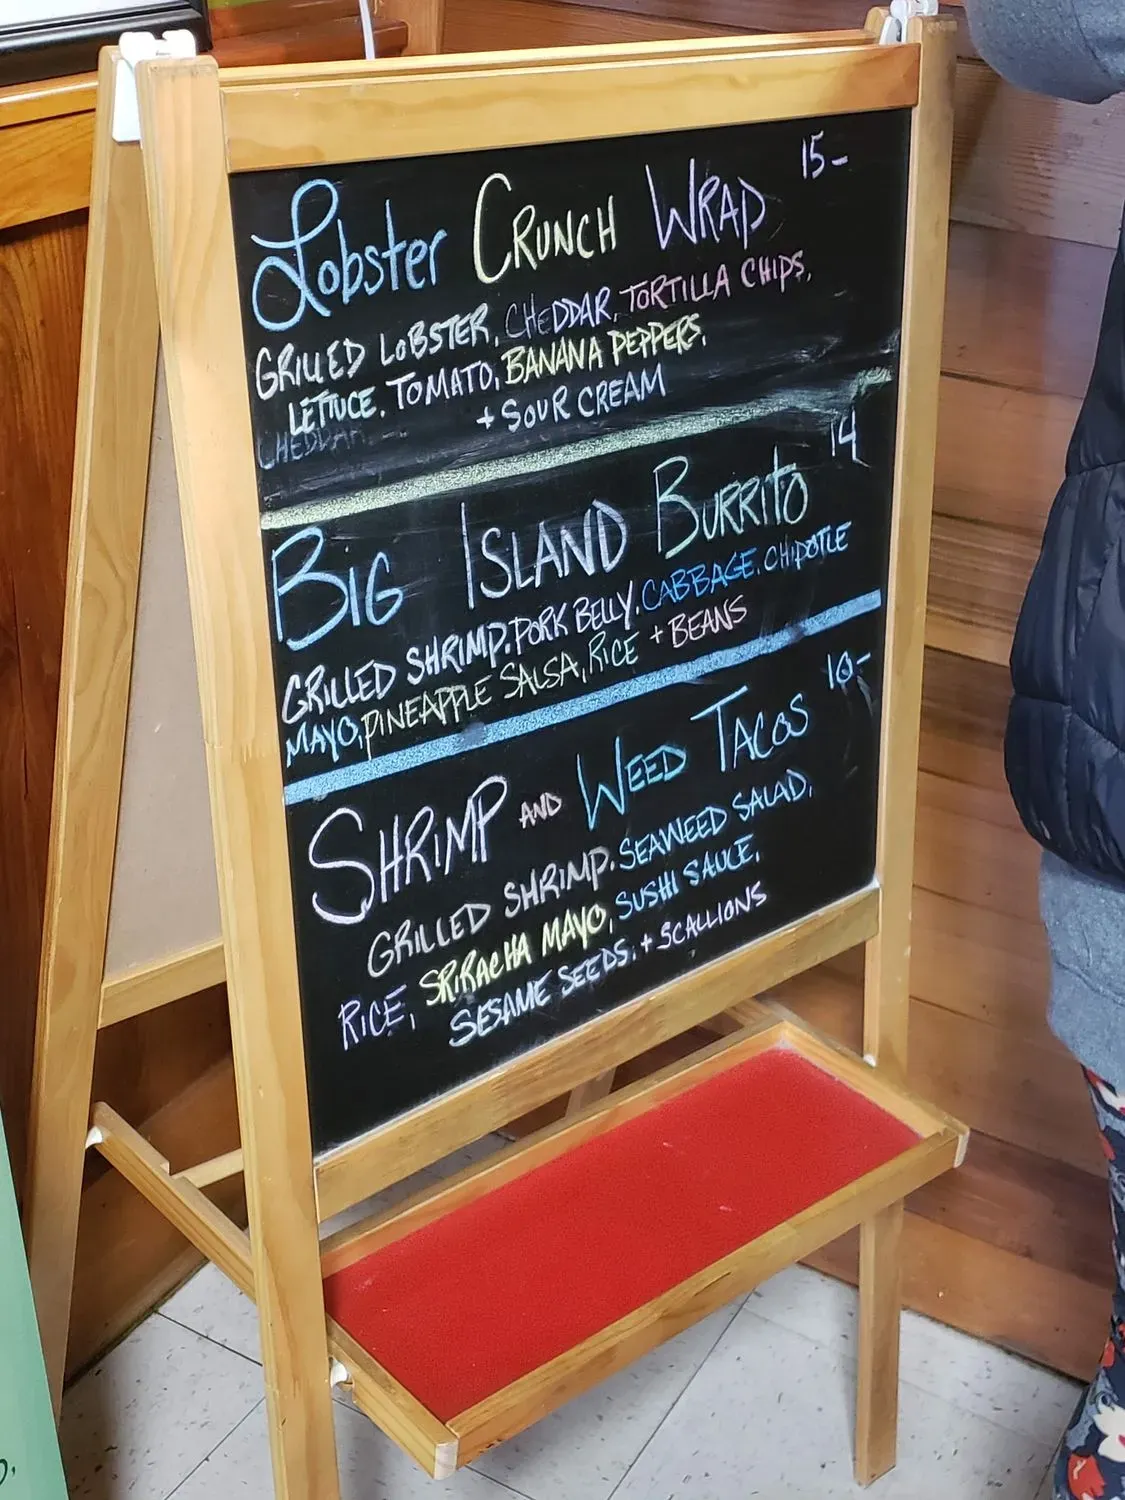 Lobster CRUNCH WRAP 15-
GRILLED LOBSTER, CHEDDAR, TORTILLA CHIPS,
LETTUCE, TOMATO, BANANA PEPPERS,
CHEDDAR + SOUR CREAM
BIG ISLAND BURRITO 14
GRILLED SHRIMP, PORK BELLY, CABBAGE, CHIPOTLE
MAYO, PINEAPPLE SALSA, RICE + BEANS
SHRIMP AND WEED TACOS 10-
GRILLED SHRIMP, SEAWEED SALAD,
RICE, SRIRACHA MAYO, SUSHI SAUCE,
SESAME SEEDS, + SCALLIONS